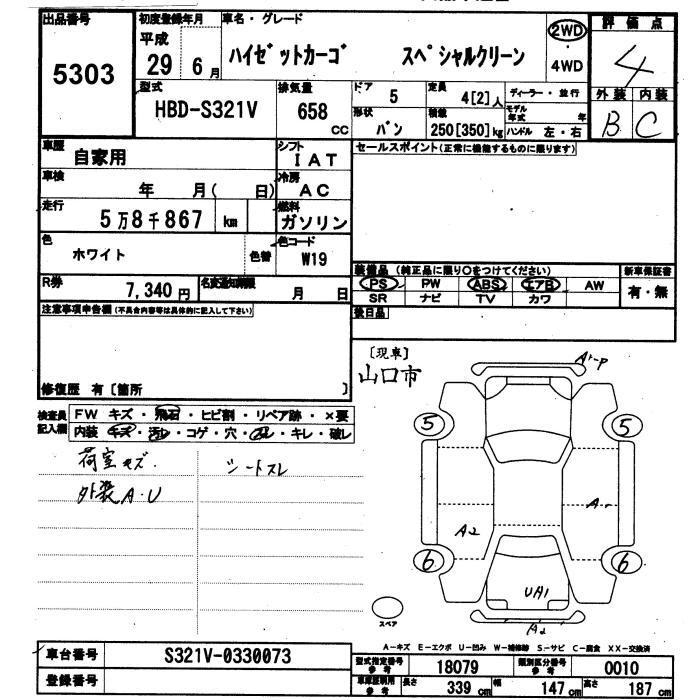 出品番号 5303
初度登録年月 平成 29年 6月
車名・グレード ハイゼットカーゴ スペシャルクリーン
2WD
4WD
評価点 4
外装 内装
B C
型式 HBD-S321V
排気量 658 cc
ドア 5
定員 4[2]人
ディーラー・並行
形状 バン
積載 250[350]kg
モデル年式 年
ハンドル 左・右
車歴 自家用
シフト IAT
セールスポイント(正常に機能するものに限ります)
車検 年 月( 日)
冷房 AC
走行 5万8千867 km
燃料 ガソリン
色 ホワイト 色替
色コード W19
R券 7,340円
名変通知期限 月 日
装備品 (純正品に限り○をつけてください) 新車保証書
PS PW ABS エアB AW 有・無
SR ナビ TV カワ
注意事項申告欄(不具合内容等は具体的に記入して下さい)
後日品
修復歴 有〔箇所 〕
〔現車〕
山口市
検査員記入欄
FW キズ・飛石・ヒビ割・リペア跡・×要
内装 キズ・汚レ・コゲ・穴・スレ・キレ・破レ
荷室キズ. シートスレ
外装A.U
5 5
A2 A1
6 6
UA1
A2
スペア
A-キズ E-エクボ U-凹み W-補修跡 S-サビ C-腐食 XX-交換済
車台番号 S321V-0330073
登録番号
型式指定番号 参考 18079 類別区分番号 参考 0010
車庫証明用 参考 長さ 339 cm 幅 147 cm 高さ 187 cm